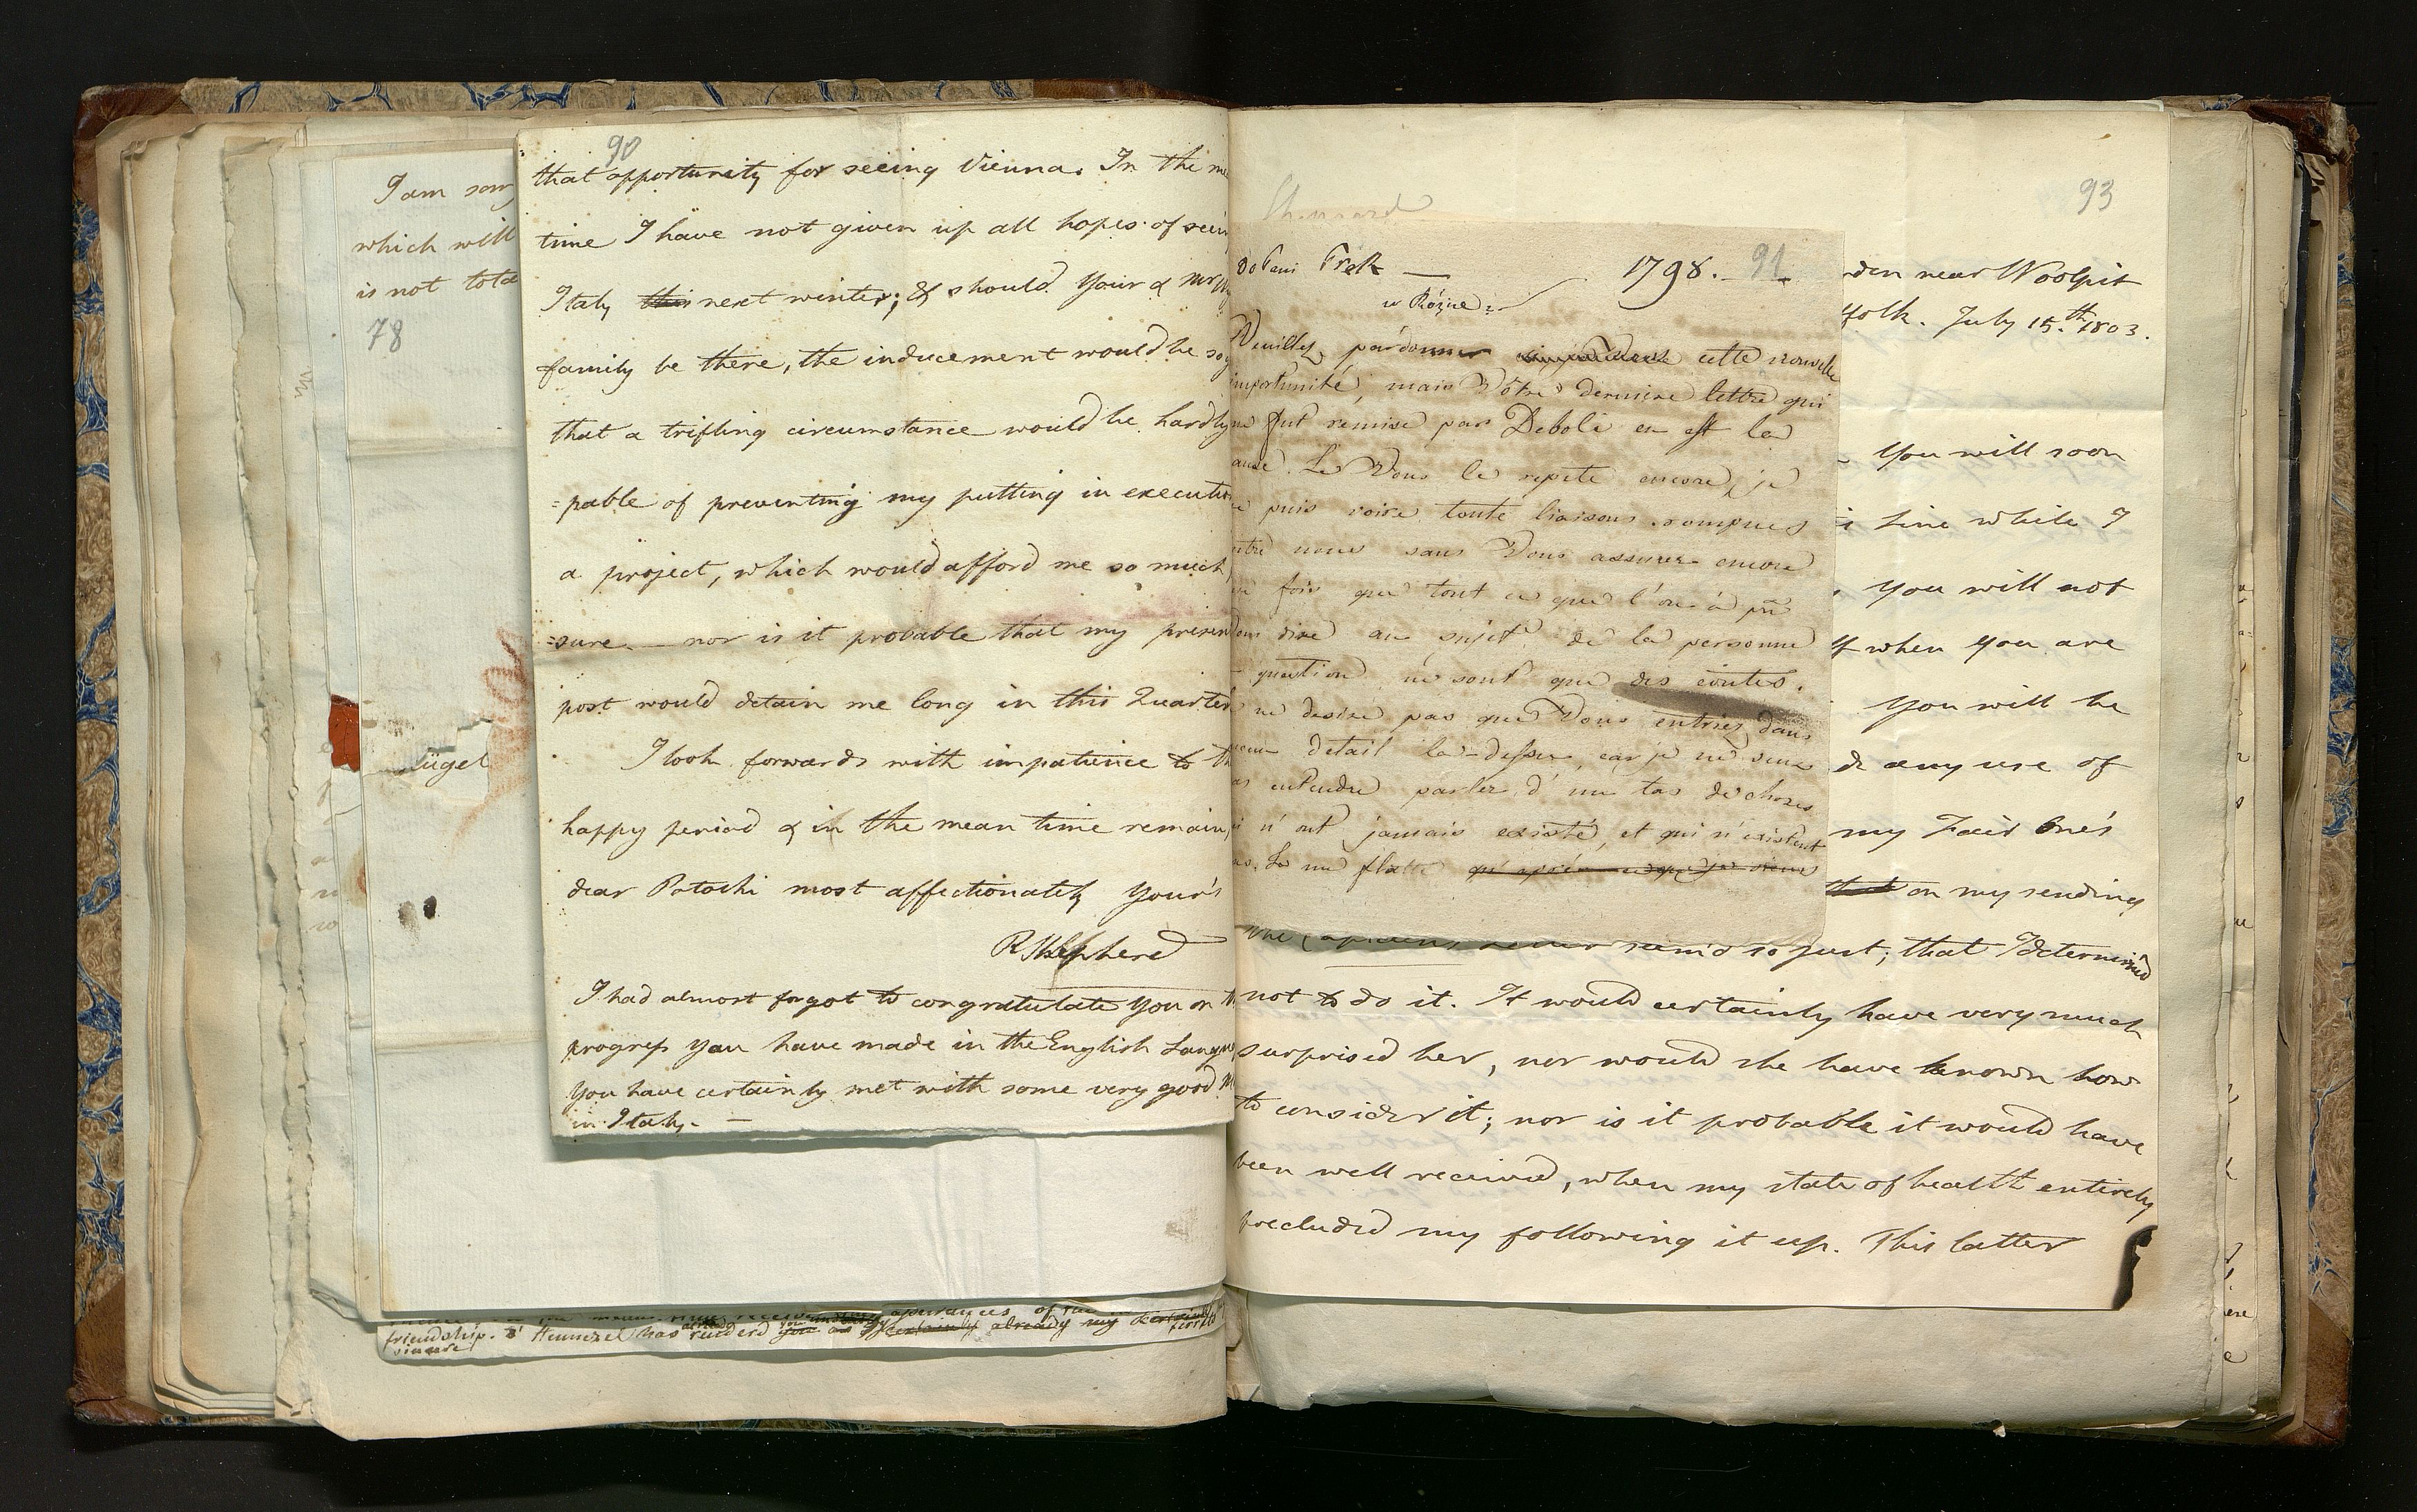 I am sorr
which will
is not tota
78
ügel
friendship.
sincere
90
that opportunity for seeing Vienna. In the me
time I have not given up all hopes of seein
Italy this next winter; & should your & Mrs
family be there, the inducement would be so g
that a trifling circumstance would be hardly
=pable of preventing my putting in executio
a project, which would afford me so much
=sure. — nor is it probable that my presen
post would detain me long in this Quarter
I look forwards with impatience to th
happy period & in the mean time remain,
dear Potocki most affectionately Your's
R Shepherd
I had almost forgot to congratulate you on th
progress you have made in the English Langua
You have certainly met with some very good M
in Italy. —
Do Pani Trek — 1798. 91
w Rózne
Veuillez pardonner cette nouvelle
importunité, mais Vôtre derniere lettre qui
me fut remise par Deboli en est la
ause. Je Vous le repete encore, je
ne puis voire toute liaisons rompues
ntre nous sans Vous assurer encore
ne fois que tout ce que l'on à pû
ous dire au sujet de la personne
question, ne sont que des contes.
ne desire pas que Vous entriez dans
ucun detail la-dessus, car je ne veux
as entendre parler d'un tas de choses
i n'ont jamais existé, et qui n'existent
as. Je me flatte qu'après ce que je viens
93
den near Woolpit
folk. July 15.th 1803.
You will soon
line while I
you will not
f when you are
You will be
de any use of
my Fair One's
that on my sending
seem'd so just; that I determin'd
not to do it. It would certainly have very much
surprised her, nor would she have known how
to consider it; nor is it probable it would have
been well received, when my state of health entirely
precluded my following it up. This latter